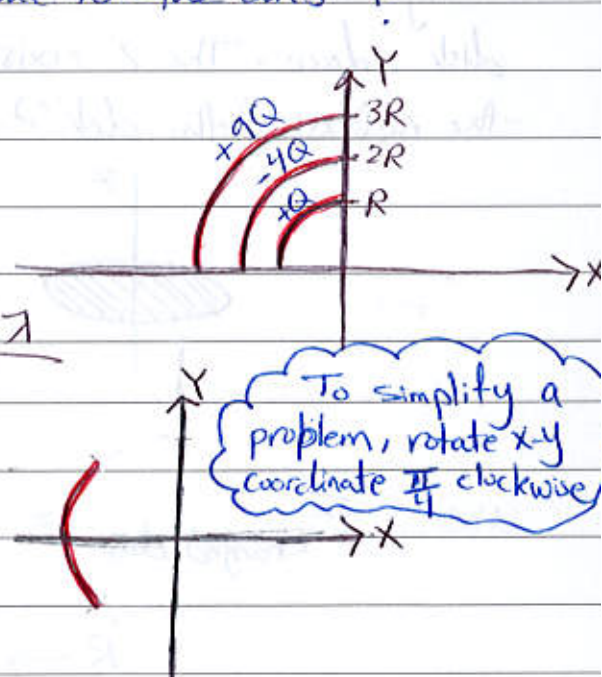 Y
+9Q
3R
-4Q
2R
+Q
R
X
λ
Y
To simplify a
problem, rotate x-y
coordinate π/4 clockwise
X